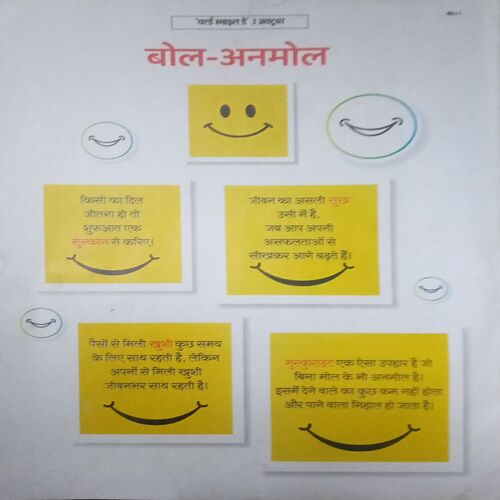 'वर्ल्ड स्माइल डे' 3 अक्टूबर
बोल-अनमोल
किसी का दिल
जीतना हो तो
शुरुआत एक
मुस्कान से करिए।
जीवन का असली सुख
उसी में है,
जब आप अपनी
असफलताओं से
सीखकर आगे बढ़ते हैं।
पैसों से मिली खुशी कुछ समय
के लिए साथ रहती है, लेकिन
अपनों से मिली खुशी
जीवनभर साथ रहती है।
मुस्कुराहट एक ऐसा उपहार है जो
बिना मोल के भी अनमोल है।
इसमें देने वाले का कुछ कम नहीं होता
और पाने वाला निहाल हो जाता है।